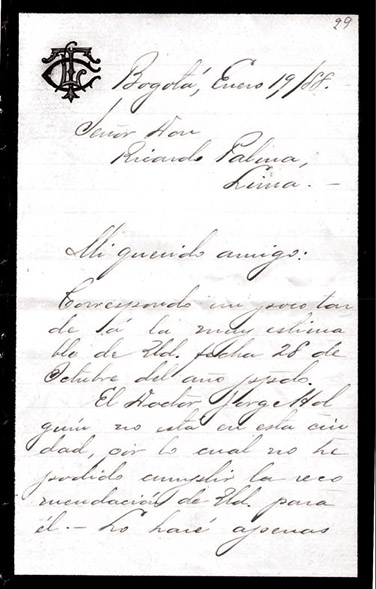 29
Bogotá, Enero 19/88.
Señor Don
Ricardo Palma,
Lima. –
Mi querido amigo:
Correspondo un poco tar
de á la muy estima
ble de Ud. fecha 28 de
Octubre del año ppdo.
El Doctor Jorge Hol
guín no está en esta ciu
dad, por lo cual no he
podido cumplir la reco
mendación de Ud. para
él. – Lo haré apenas